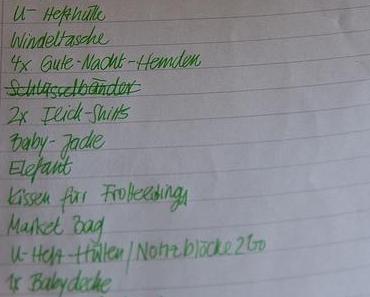 U-Hefthülle
Windeltasche
4x Gute-Nacht-Hemden
Schlüsselbänder
2x Shirts
Baby-Jacke
Elefant
Kissen für
Market Bag
U-Heft-Hüllen/Notizblöcke 2Go
1x Babydecke